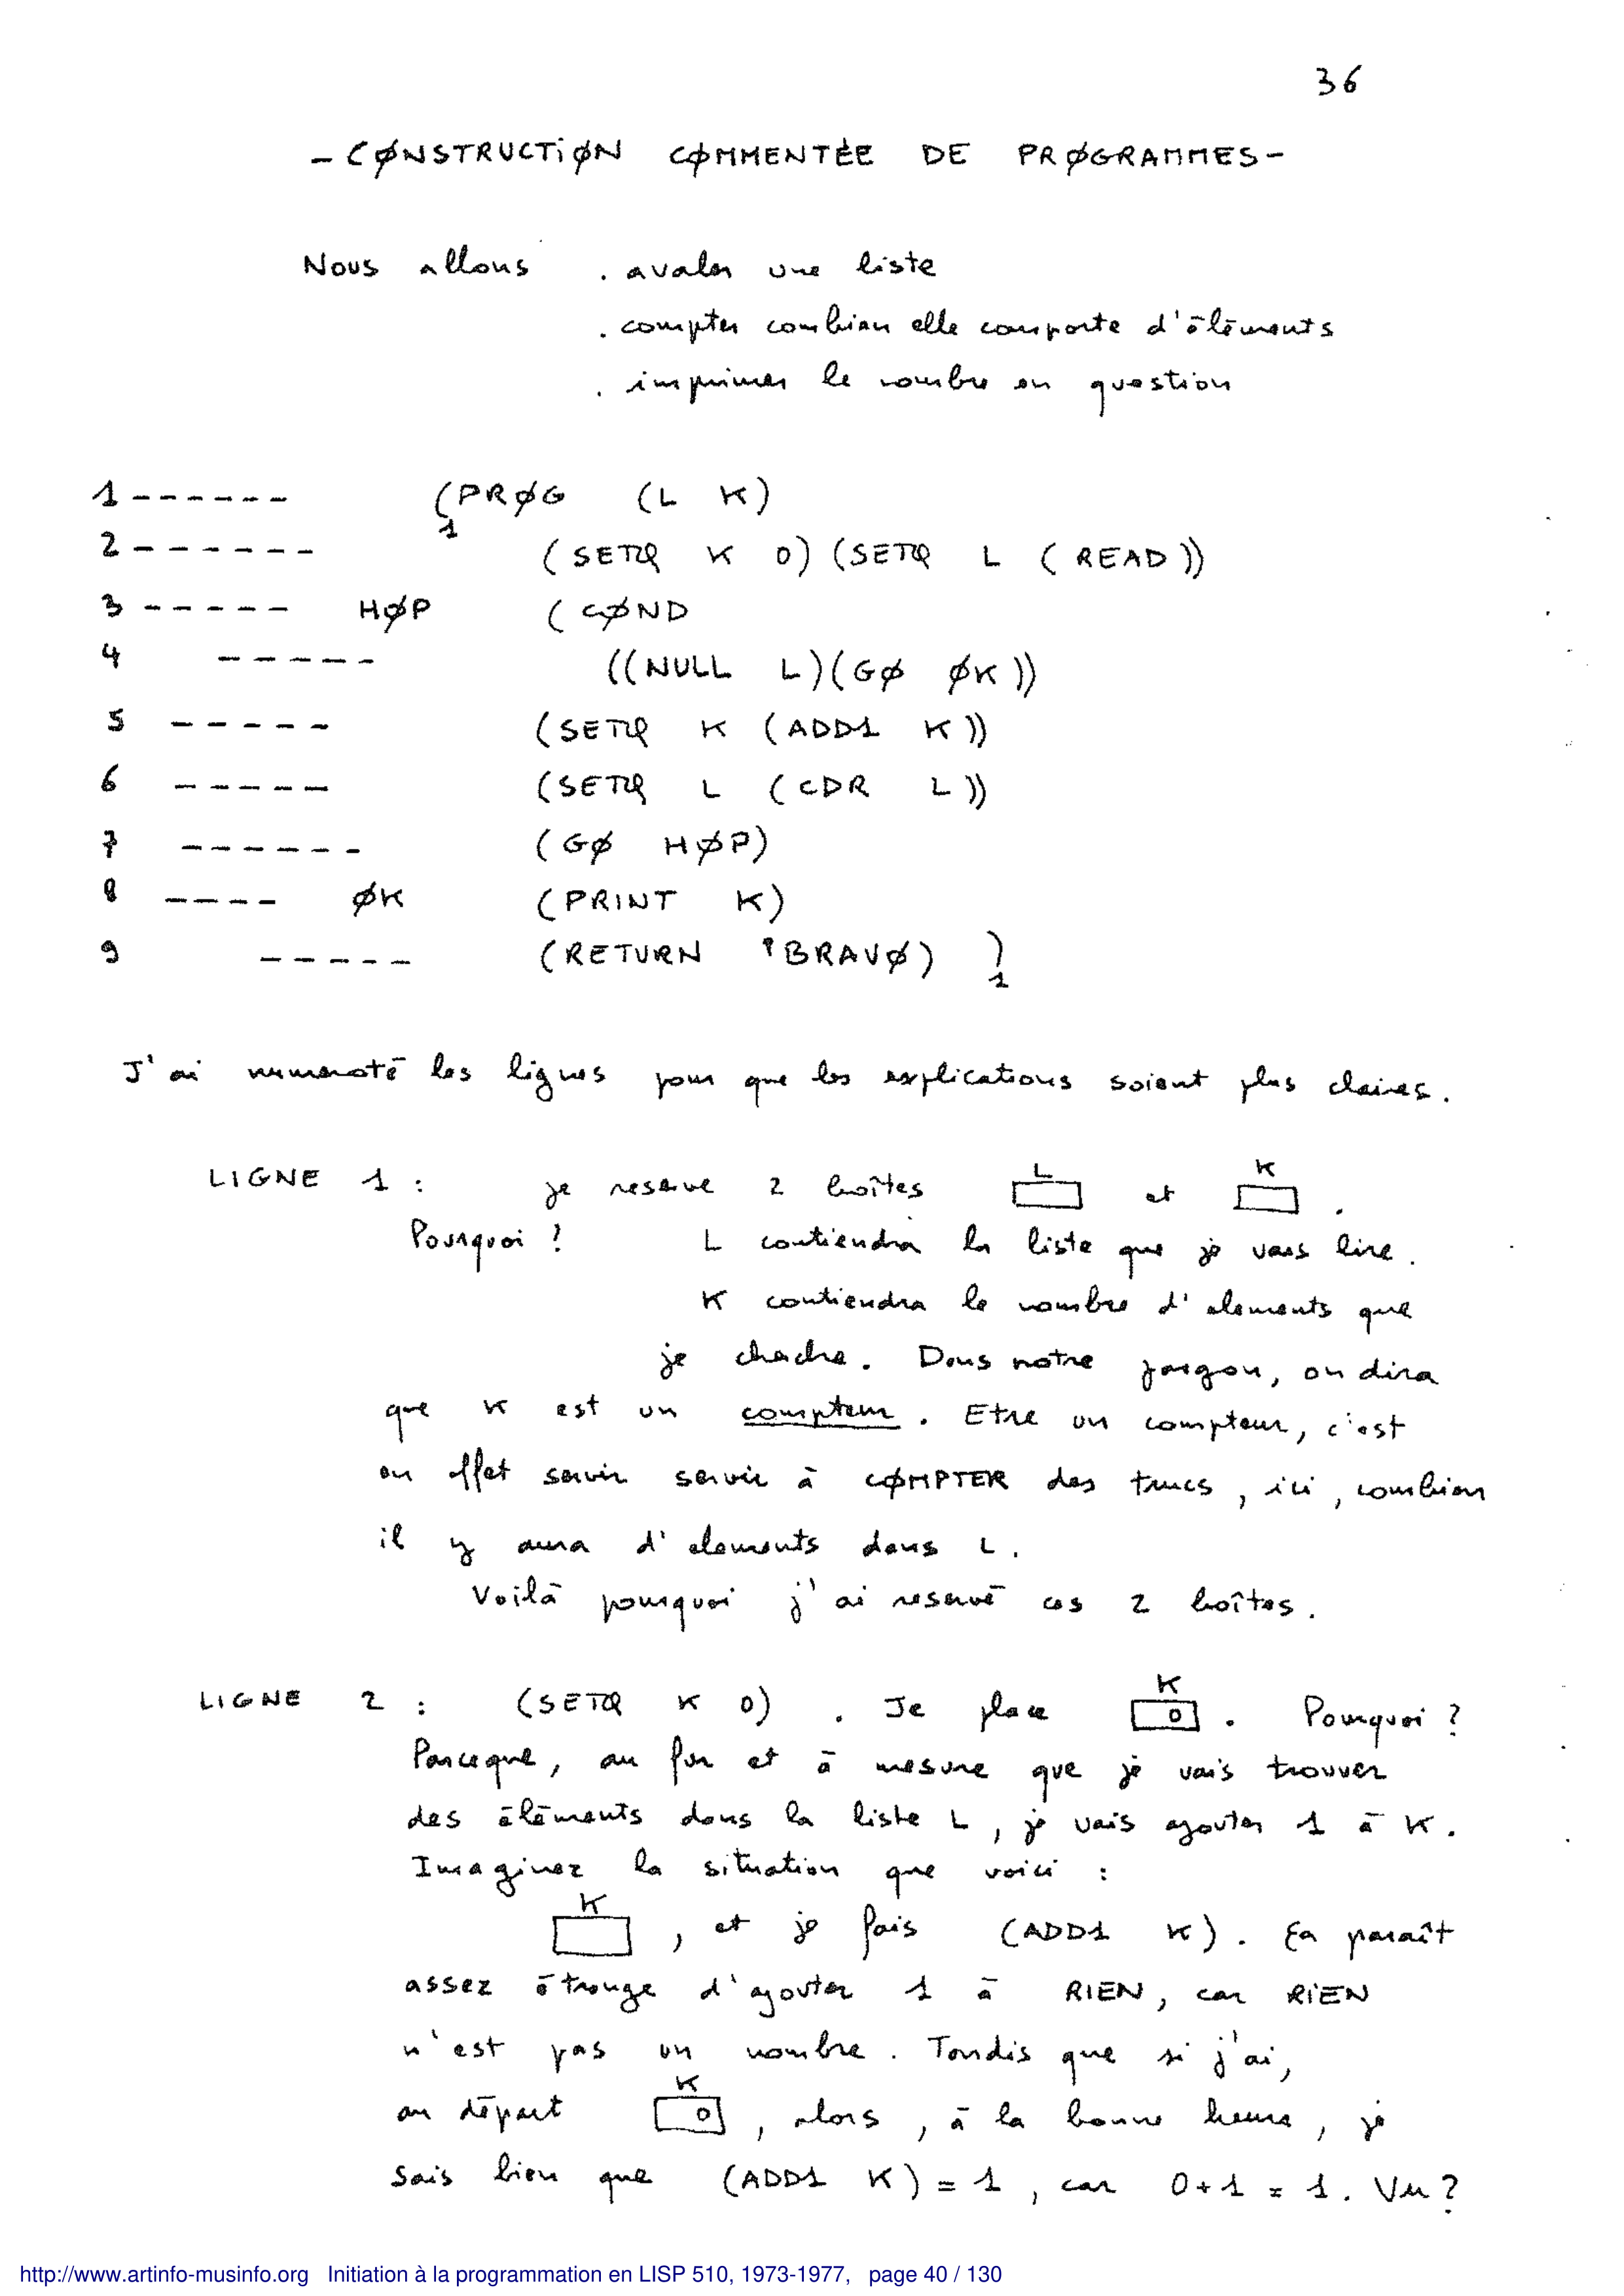 36
- CØNSTRUCTiØN CØMMENTÉE DE PRØGRAMMES -
Nous allons . avaler une liste
. compter combien elle comporte d'éléments
. imprimer le nombre en question
1 ------ (PRØG (L K)
1
2 ------ (SETQ K 0) (SETQ L (READ))
3 ----- HØP (CØND
4 ----- ((NULL L)(GØ ØK))
5 ----- (SETQ K (ADD1 K))
6 ----- (SETQ L (CDR L))
7 ------ (GØ HØP)
8 ---- ØK (PRINT K)
9 ----- (RETURN 'BRAVØ) )
1
J'ai numeroté les lignes pour que les explications soient plus claires.
L K
LIGNE 1 : je reserve 2 boîtes et .
Pourquoi ? L contiendra la liste que je vais lire.
K contiendra le nombre d'elements que
je cherche. Dans notre jargon, on dira
que K est un compteur. Etre un compteur, c'est
en effet servir servir à CØMPTER des trucs, ici, combien
il y aura d'elements dans L.
Voilà pourquoi j'ai reservé ces 2 boîtes.
K
LIGNE 2 : (SETQ K 0) . Je place 0 . Pourquoi ?
Parceque, au fur et à mesure que je vais trouver
des éléments dans la liste L, je vais ajouter 1 à K.
Imaginez la situation que voici :
K
, et je fais (ADD1 K). Ça paraît
assez étrange d'ajouter 1 à RIEN, car RiEN
n'est pas un nombre. Tandis que si j'ai,
K
au départ 0 , alors, à la bonne heure, je
sais bien que (ADD1 K) = 1, car 0+1 = 1. Vu ?
http://www.artinfo-musinfo.org Initiation à la programmation en LISP 510, 1973-1977, page 40 / 130